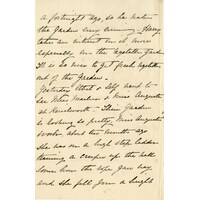 a fortnight ago, so he waters
the Garden every evening - Harry
takes an interest in it more
especially in the vegetable garden
It is so nice to get fresh vegetables
out of the Garden.
Yesterday Ethel & self went to
see Miss Machen & Miss Augusta
at Kenilworth - Their Garden
is looking so pretty, Miss Augusta's
broken about two months ago
She was on a high step ladder
training a creeper up the wall
Some how the rope gave way
and she fell from a height